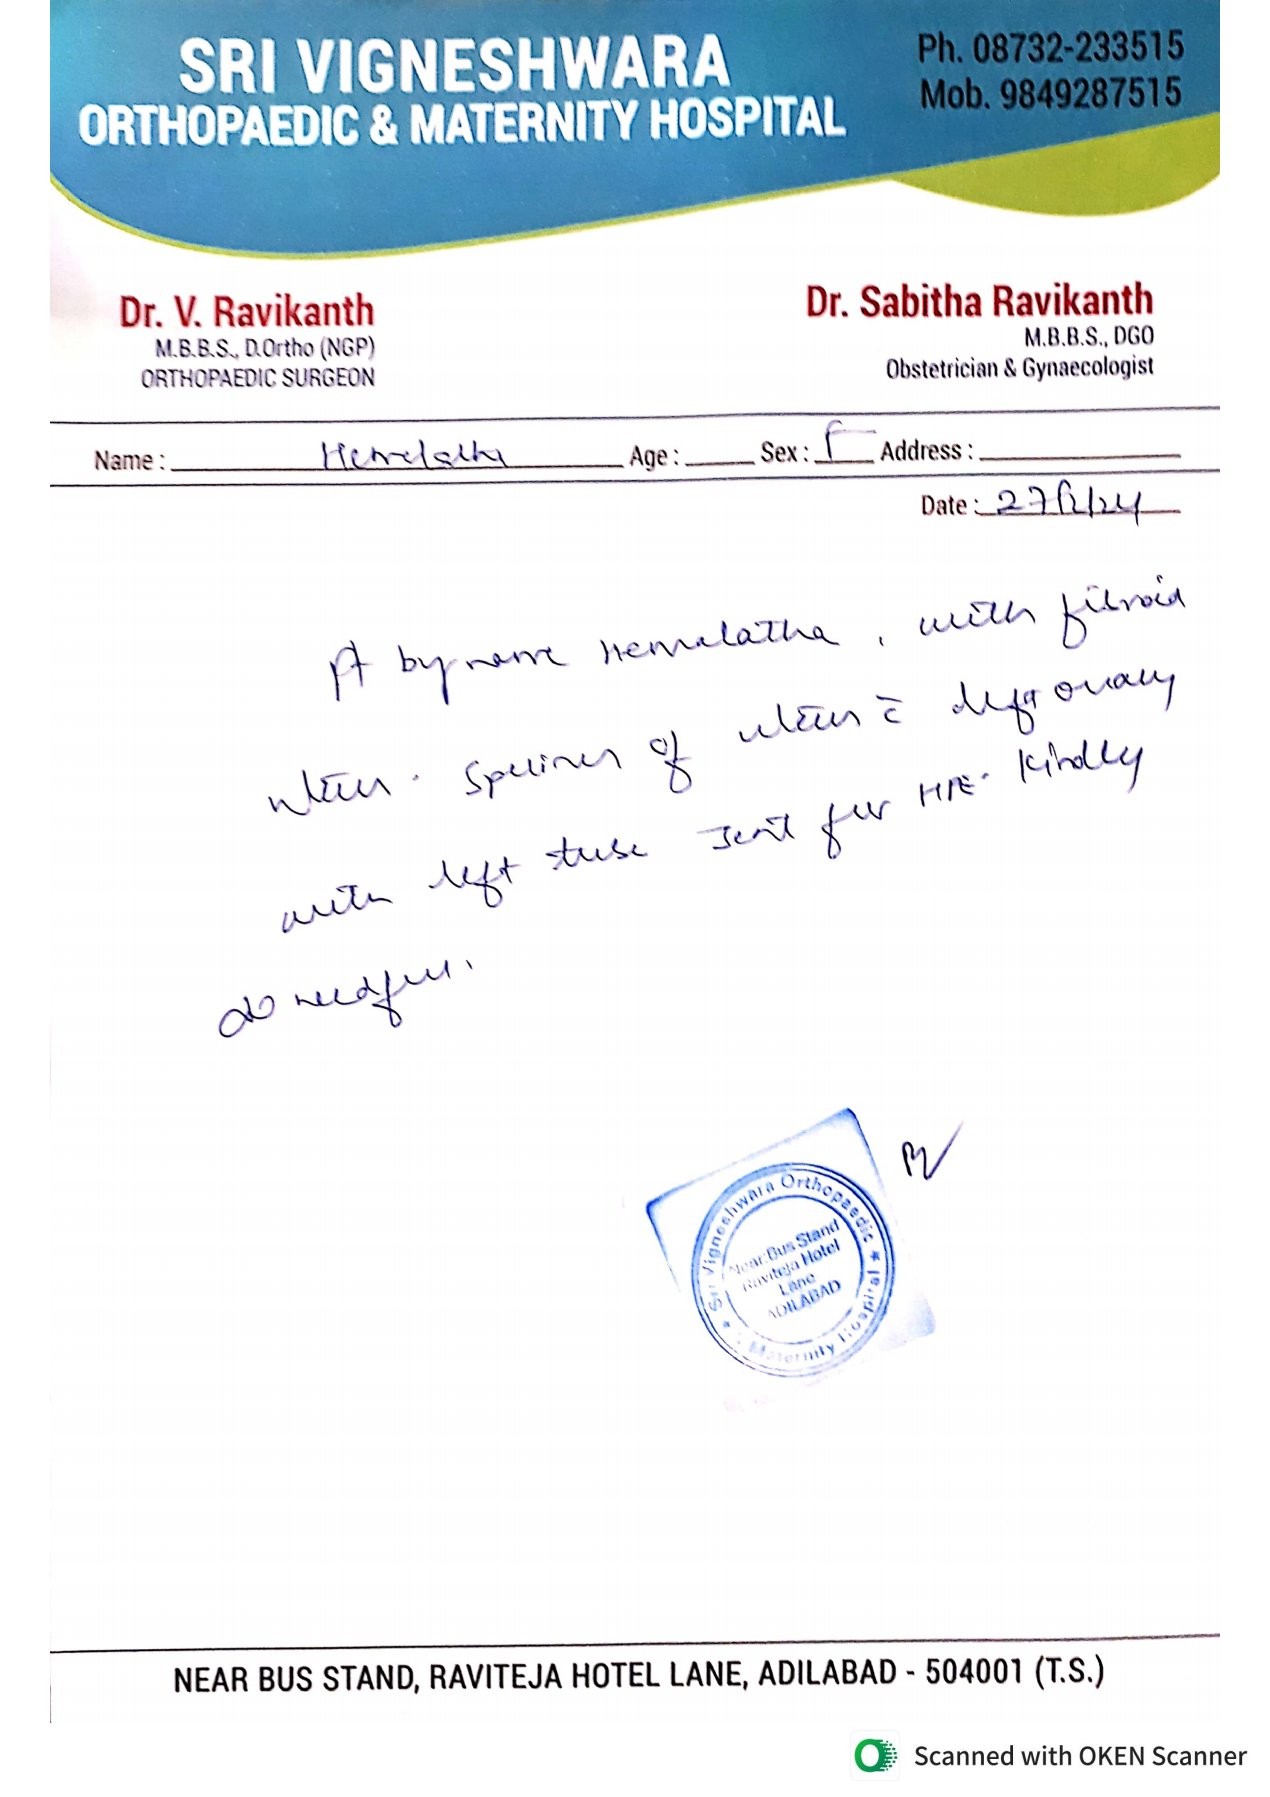 SRI VIGNESHWARA
ORTHOPAEDIC & MATERNITY HOSPITAL
Ph. 08732-233515
Mob. 9849287515
Dr. V. Ravikanth
M.B.B.S., D.Ortho (NGP)
ORTHOPAEDIC SURGEON
Dr. Sabitha Ravikanth
M.B.B.S., DGO
Obstetrician & Gynaecologist
Name : Hemelatha Age : Sex : F Address :
Date : 27/1/24
Pt by name Hemalatha, with fibroid
uterus. Specimen of uterus c̄ left ovary
with left tube sent for HPE. Kindly
do needful.
Sri Vigneshwara Orthopaedic
Near:Bus Stand
Raviteja Hotel
Lane
ADILABAD
Maternity Hospital
NEAR BUS STAND, RAVITEJA HOTEL LANE, ADILABAD - 504001 (T.S.)
Scanned with OKEN Scanner